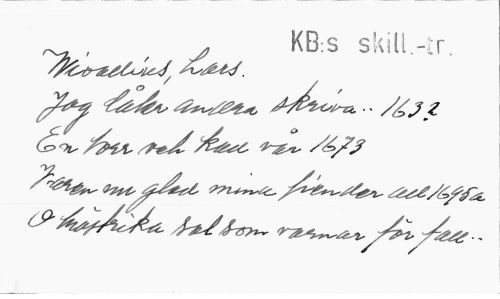 KB:s skill.-tr.
Wivallius, Lars.
Jag låter andra skriva.. 163?
En torr och kall vår 1673
Varen nu glad mina fiender all 1698a
O högtrika sol som varnar för fall..